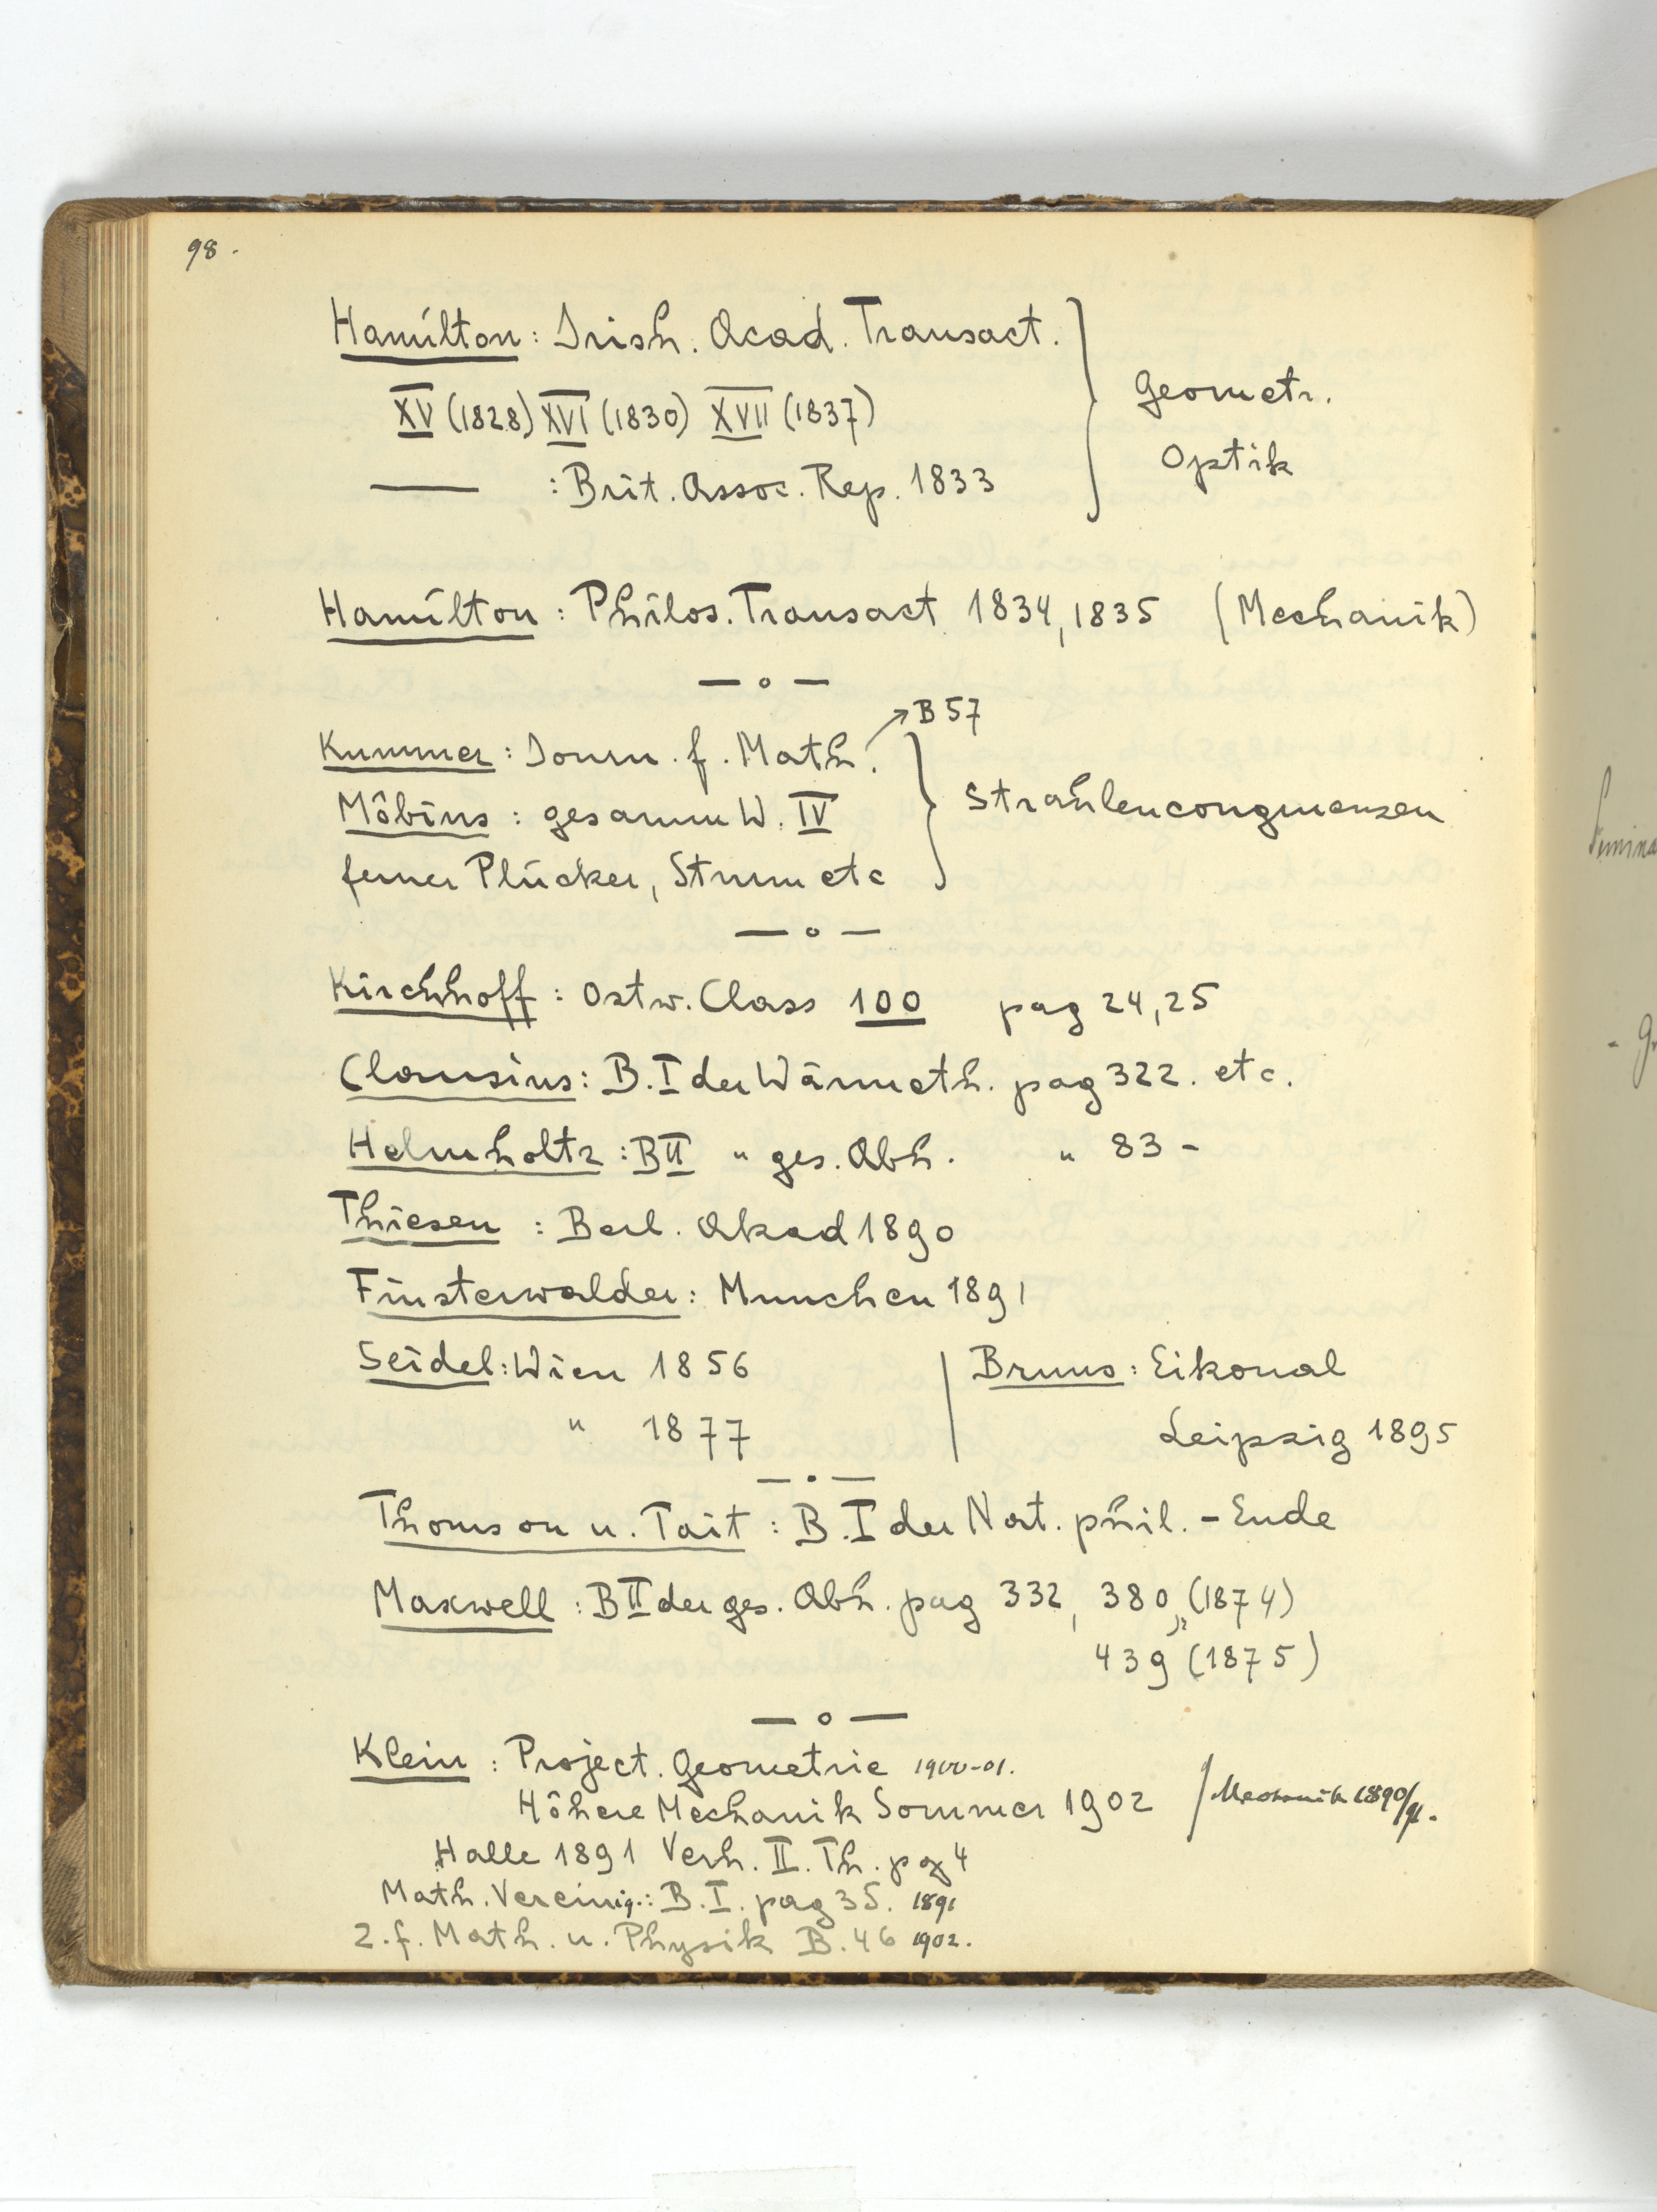 98.
Hamilton: Irish. Acad. Transact.
XV (1828) XVI (1830) XVII (1837)
— : Brit. Assoc. Rep. 1833
Geometr.
Optik
Hamilton: Philos. Transact 1834, 1835 (Mechanik)
—o—
Kummer: Journ. f. Math. ↗B 57
Möbius: gesamm W. IV
ferner Plücker, Sturm etc
Strahlencongruenzen
—o—
Kirchhoff: Ostw. Class 100 pag 24, 25
Clausius: B. I der Wärmeth. pag 322. etc.
Helmholtz: B II " ges. Abh. " 83 -
Thiesen: Berl. Akad 1890
Finsterwalder: Munchen 1891
Seidel: Wien 1856
" 1877
Bruns: Eikonal
Leipzig 1895
—.—
Thomson u. Tait: B. I der Nat. phil. - Ende
Maxwell: B II der ges. Abh. pag 332, 380, (1874)
439 (1875)
—o—
Klein: Project. Geometrie 1900-01.
Höhere Mechanik Sommer 1902 / Mechanik 1890/91.
Halle 1891 Verh. II. Th. pag 4
Math. Vereinig.: B. I. pag 35. 1891
Z. f. Math. u. Physik B. 46 1902.